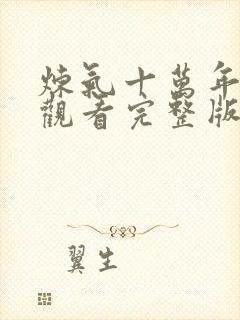 煉氣十萬年
觀看完整版
翼生